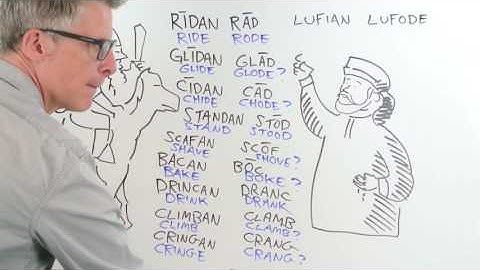 RĪDAN RĀD LUFIAN LUFODE
RIDE RODE
GLĪDAN GLĀD
GLIDE GLODE?
CĪDAN CĀD
CHIDE CHODE?
STANDAN STŌD
STAND STOOD
SCAFAN SCŌF
SHAVE SHOVE?
BACAN BŌC
BAKE BOKE?
DRINCAN DRANC
DRINK DRANK
CLIMBAN CLAMB
CLIMB CLAMB?
CRINGAN CRANG
CRINGE CRANG?